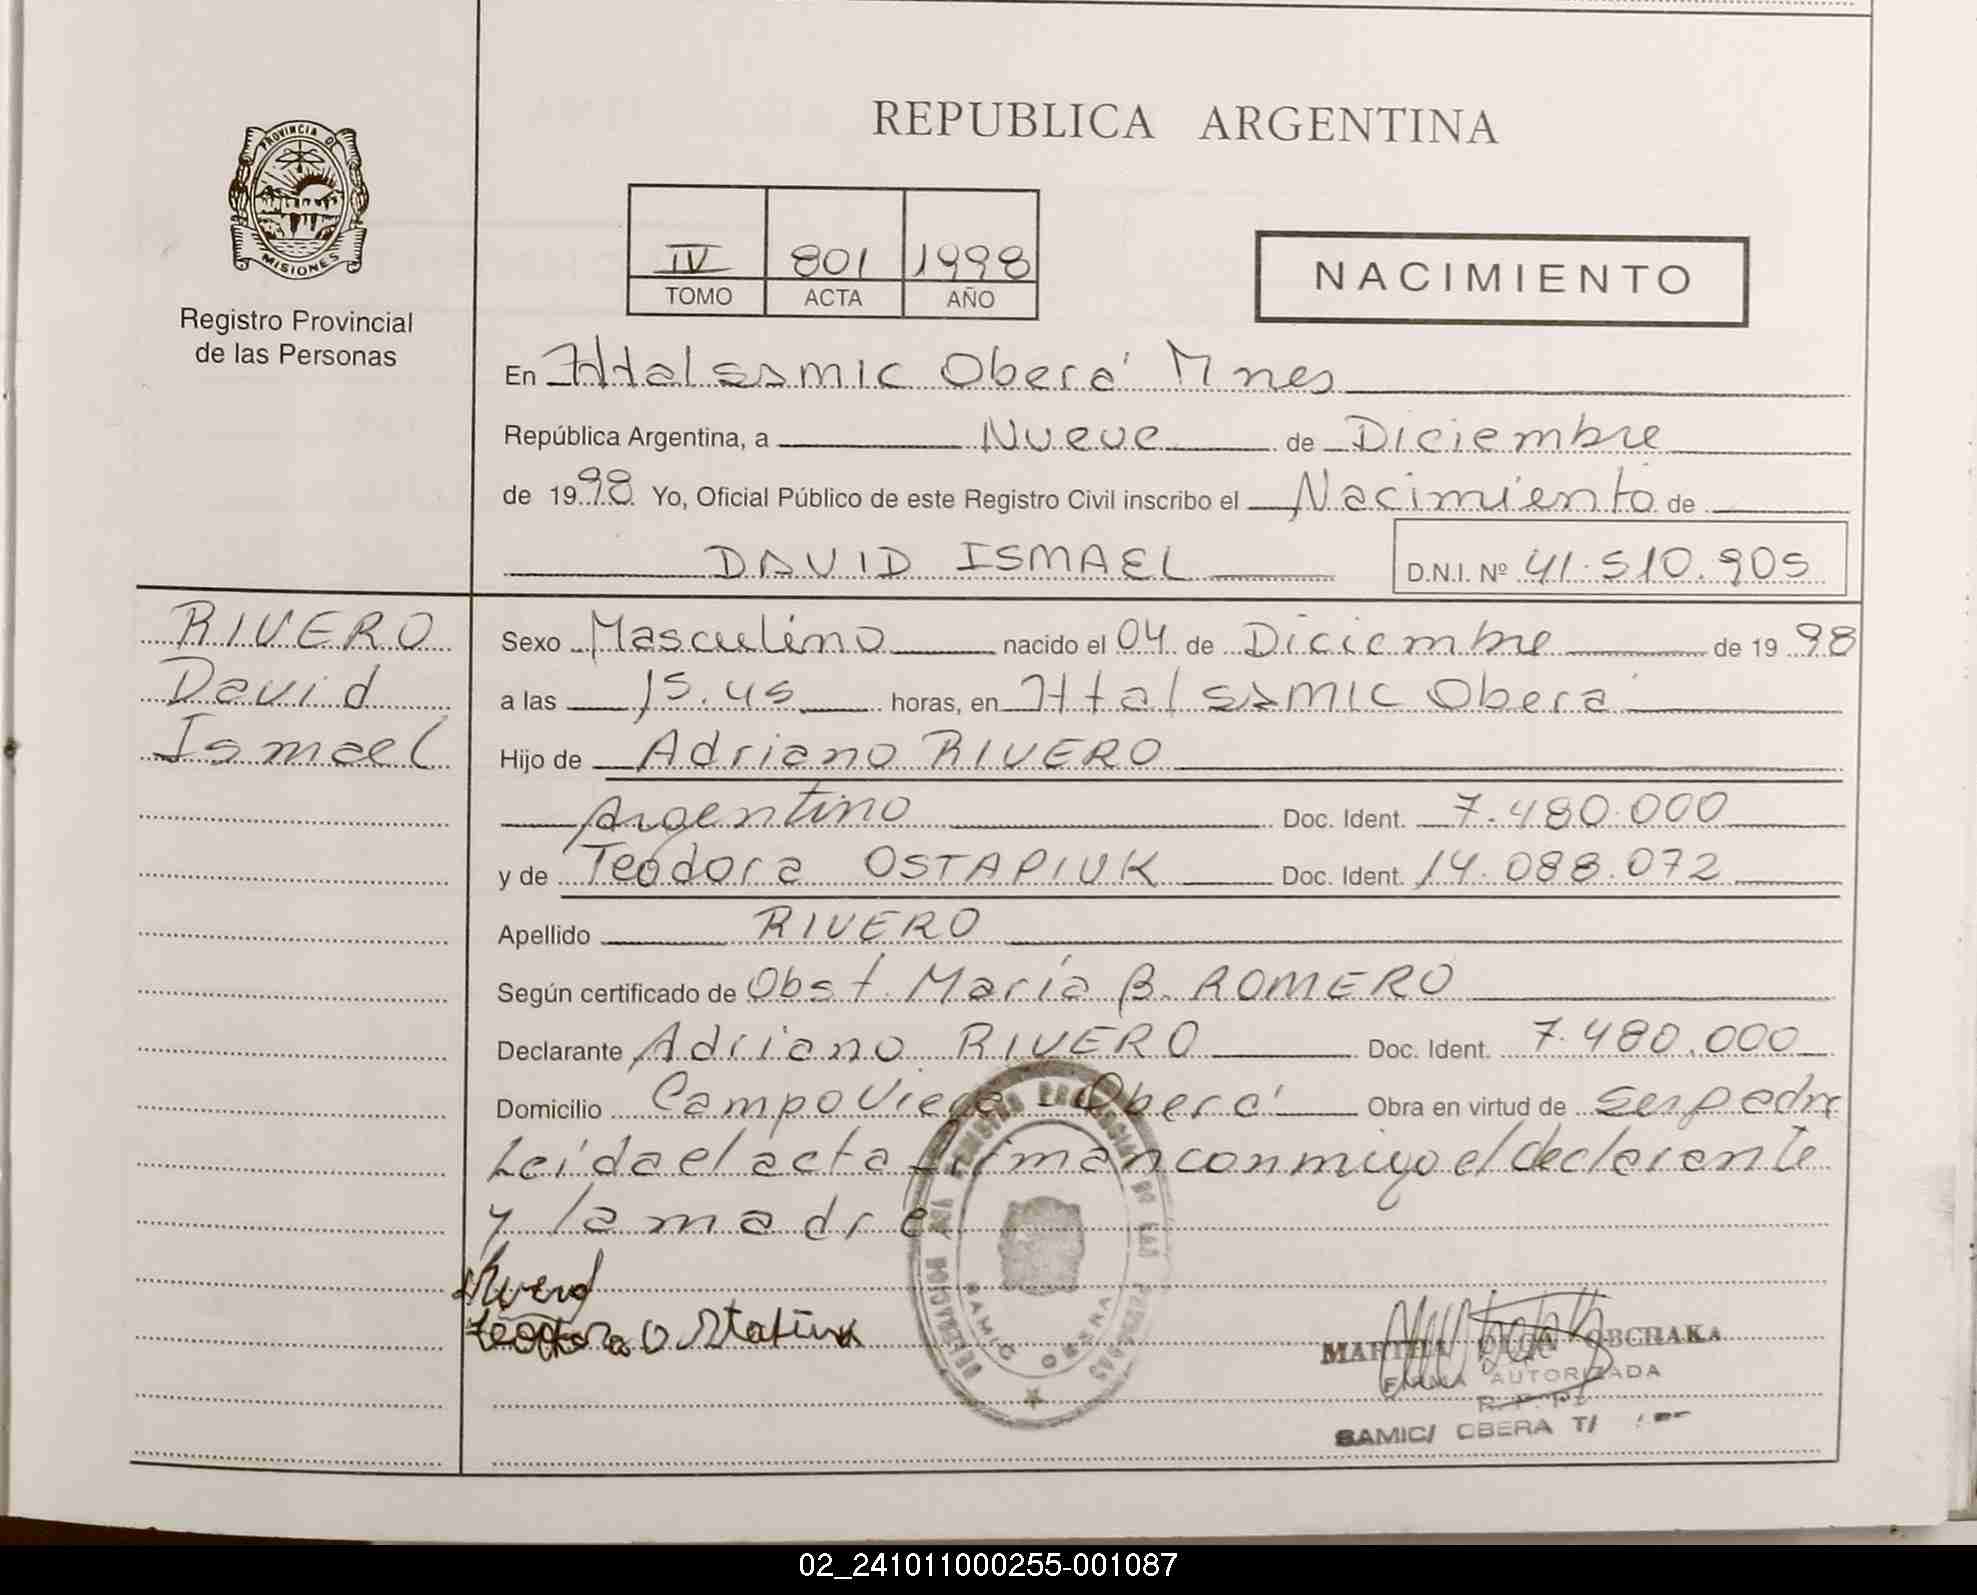 PROVINCIA DE
MISIONES
Registro Provincial
de las Personas
REPUBLICA ARGENTINA
IV 801 1998
TOMO ACTA AÑO
NACIMIENTO
En Httal samic Oberá Mnes
República Argentina, a Nueve de Diciembre
de 1998 Yo, Oficial Público de este Registro Civil inscribo el Nacimiento de
DAVID ISMAEL D.N.I. Nº 41.510.905
RIVERO
David
Ismael
Sexo Masculino nacido el 04 de Diciembre de 1998
a las 15.45 horas, en Httal samic Oberá
Hijo de Adriano RIVERO
Argentino Doc. Ident. 7.480.000
y de Teodora OSTAPIUK Doc. Ident. 14.088.072
Apellido RIVERO
Según certificado de Obst. María B. ROMERO
Declarante Adriano RIVERO Doc. Ident. 7.480.000
Domicilio Campo Viera - Oberá Obra en virtud de ser padre
Leída el acta firman conmigo el declarente
y la madre
Rivero
Teodora Ostapiuk
SAMIC OBERA
MARTHA OLGA OBCHAKA
FIRMA AUTORIZADA
R.P.P.
SAMIC/ OBERA T/
02_241011000255-001087